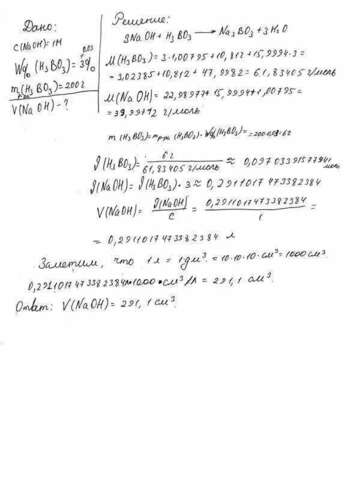 Дано:
C(NaOH)=1М
0,03
W%(H₃BO₃)=3%
m(H₃BO₃)=200г
V(NaOH)-?
Решение:
3NaOH+H₃BO₃ → Na₃BO₃+3H₂O
M(H₃BO₃)=3·1,00795+10,812+15,9994·3=
=3,02385+10,812+47,9982=61,83405г/моль
M(NaOH)=22,98977+15,9994+1,00795=
=39,99712г/моль
m(H₃BO₃)=mр-ра(H₃BO₃)·W%(H₃BO₃)=
(H₃BO₃)=6г/61,83405г/моль≈0,0970339157794
моль
(NaOH)=(H₃BO₃)·3≈0,2911017473382384
моль
V(NaOH)=(NaOH)/C=0,2911017473382384/1=
=0,2911017473382384 л
Заметим, что 1л=1дм³=10·10·10·см³=1000см³.
0,2911017473382384л·1000·см³/л=291,1см³.
Ответ: V(NaOH)=291,1см³.